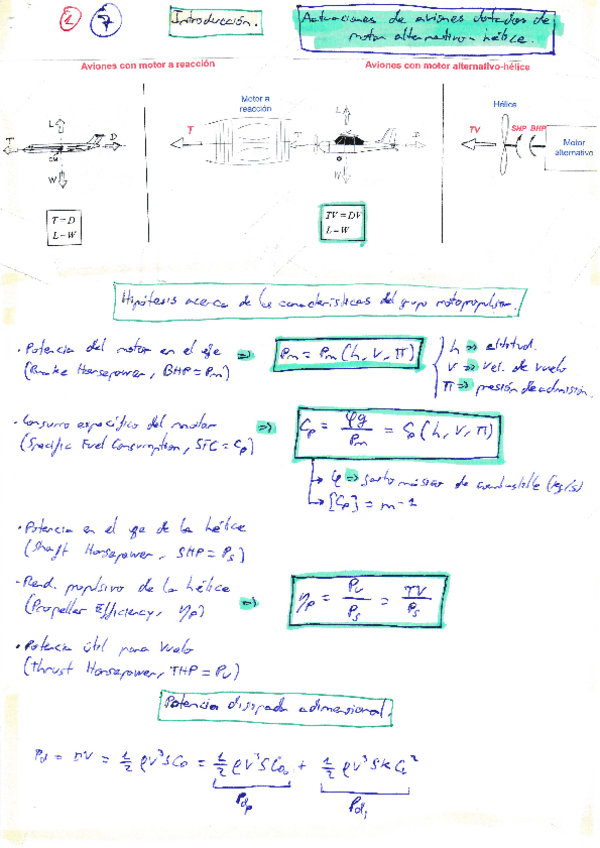 1 7 Introducción. Actuaciones de aviones dotados de
motor alternativo-hélice.
Aviones con motor a reacción
Aviones con motor alternativo-hélice
L T D W
T = D
L = W
Motor a
reacción
T
L T D W
TV = DV
L = W
Hélice
TV SHP BHP
Motor
alternativo
Hipótesis acerca de las características del grupo motopropulsor.
· Potencia del motor en el eje ⇒ Pm = Pm (h, V, π)
(Brake Horsepower, BHP = Pm)
h ⇒ altitud.
V ⇒ Vel. de vuelo
π ⇒ presión de admisión.
· Consumo específico del motor ⇒ Cp = φg / Pm = Cp (h, V, π)
(Specific Fuel Consumption, SFC = Cp)
φ ⇒ gasto másico de combustible (kg/s)
[Cp] = m-1
· Potencia en el eje de la hélice
(Shaft Horsepower, SHP = Ps)
· Rend. propulsivo de la hélice
(Propeller Efficiency, ηp) ⇒ ηp = Pu / Ps = TV / Ps
· Potencia útil para vuelo
(Thrust Horsepower, THP = Pu)
Potencia disipada adimensional.
Pd = DV = 1/2 ρV³SCD = 1/2 ρV³SCD₀ + 1/2 ρV³SKCL²
Pdp Pdi